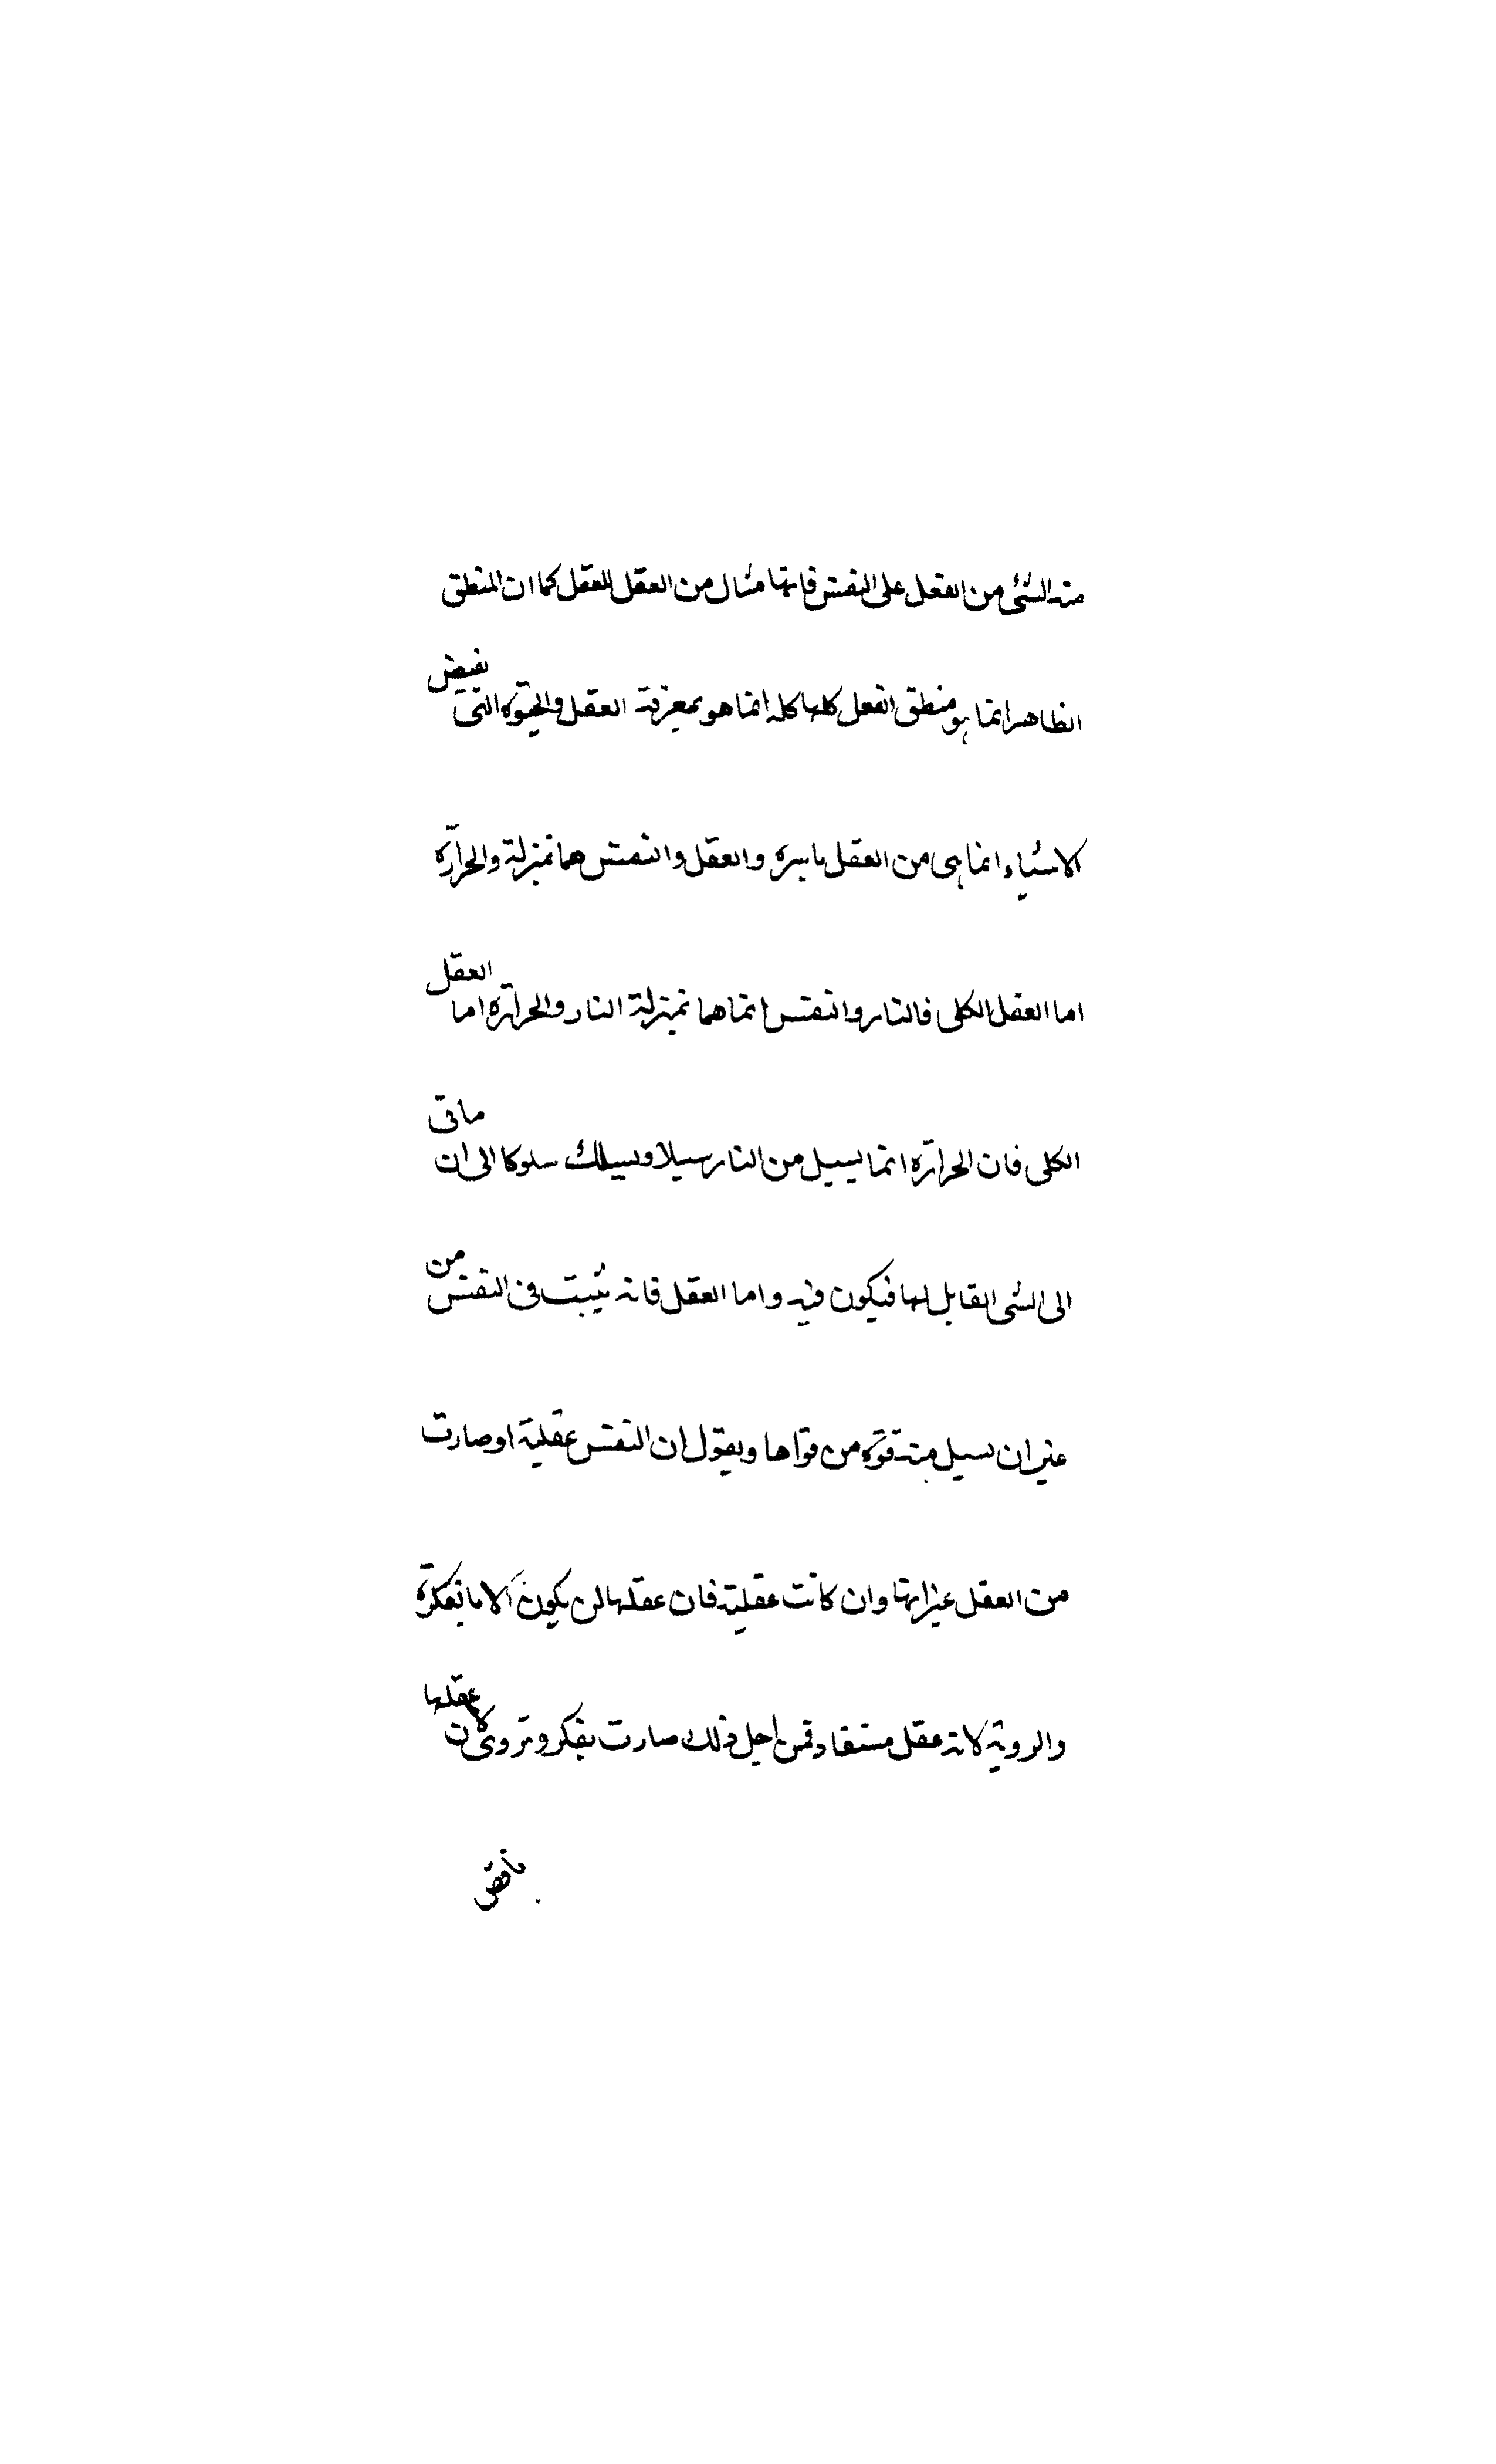 منه الشئ من الفعل على النفس فانها مثال من العقل للعقل كما ان المنطق
الظاهر انما هو منطق الفعل كلها كله انما هو بمعرفة العقل والحيوة التى يفيض
الاشياء انما هى من العقل باسره والعقل والنفس هما بمنزلة والحرارة
اما العقل الكلى فالنار والنفس انما هما بمنزلة النار والحرارة اما العقل
الكلى فان الحرارة انما يسيل من النار سيلا ويسلك سلوكا الى ان ماتى
الى الشى القابل لها فيكون فيه واما العقل فانه يثبت فى النفس من
غير ان يسيل منه قوة من قواها ويقول ان النفس عقلية او صارت
من العقل غير انها وان كانت عقلية فان عقلها لن يكون الا ما بفكرة
والروية لانه عقل مستفاد فمن اجل ذلك صارت يفكر وتروى لان عقلها
ناقص